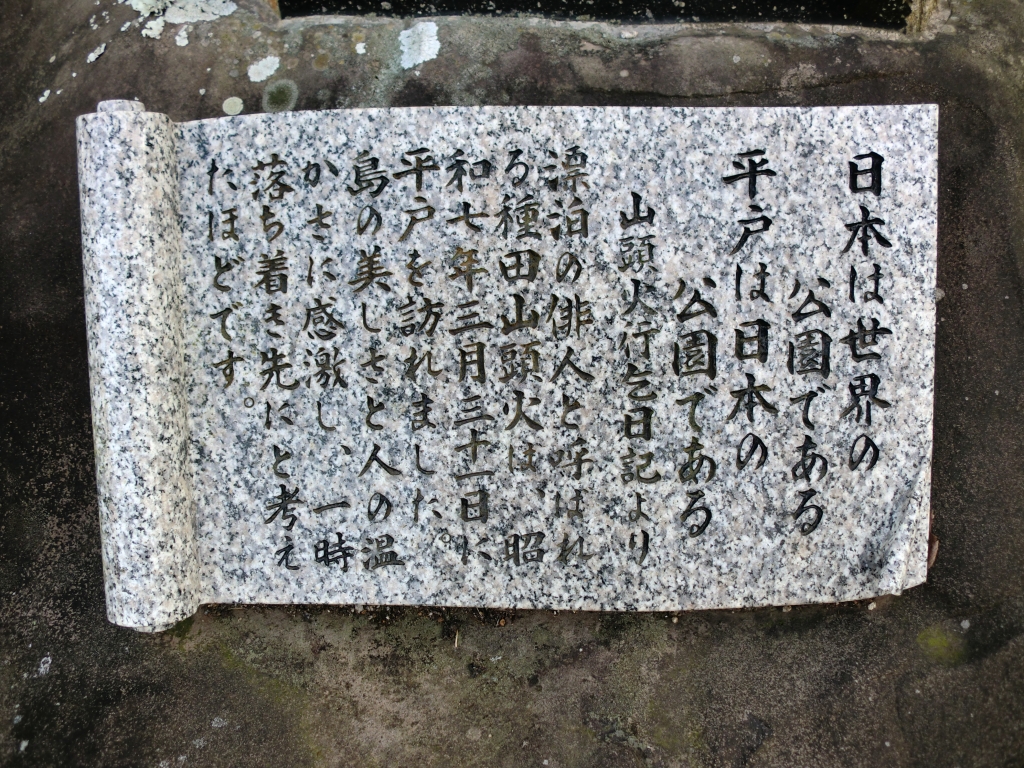 日本は世界の
公園である
平戸は日本の
公園である
山頭火行乞日記より
漂泊の俳人と呼ばれ
る種田山頭火は、昭
和七年三月三十一日に
平戸を訪れました。
島の美しさと人の温
かさに感激し、一時
落ち着き先にと考え
たほどです。